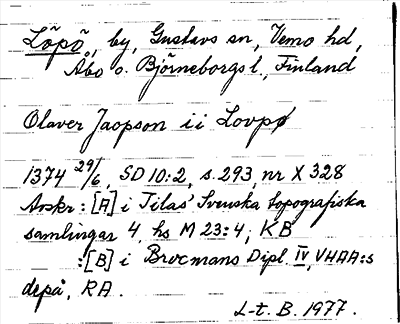 Löpö, by, Gustavs sn, Vemo hd,
Åbo o. Björneborgs l., Finland
Olaver Jacpson i i Lovpø
1374 29/6, SD 10:2, s. 293, nr X 328
Avskr: [A] i Tilas' Svenska topografiska
samlingar 4, hs M 23:4, KB
:[B] i Brocmans Dipl. IV, VHAA:s
depå, RA.
L-t. B. 1977.